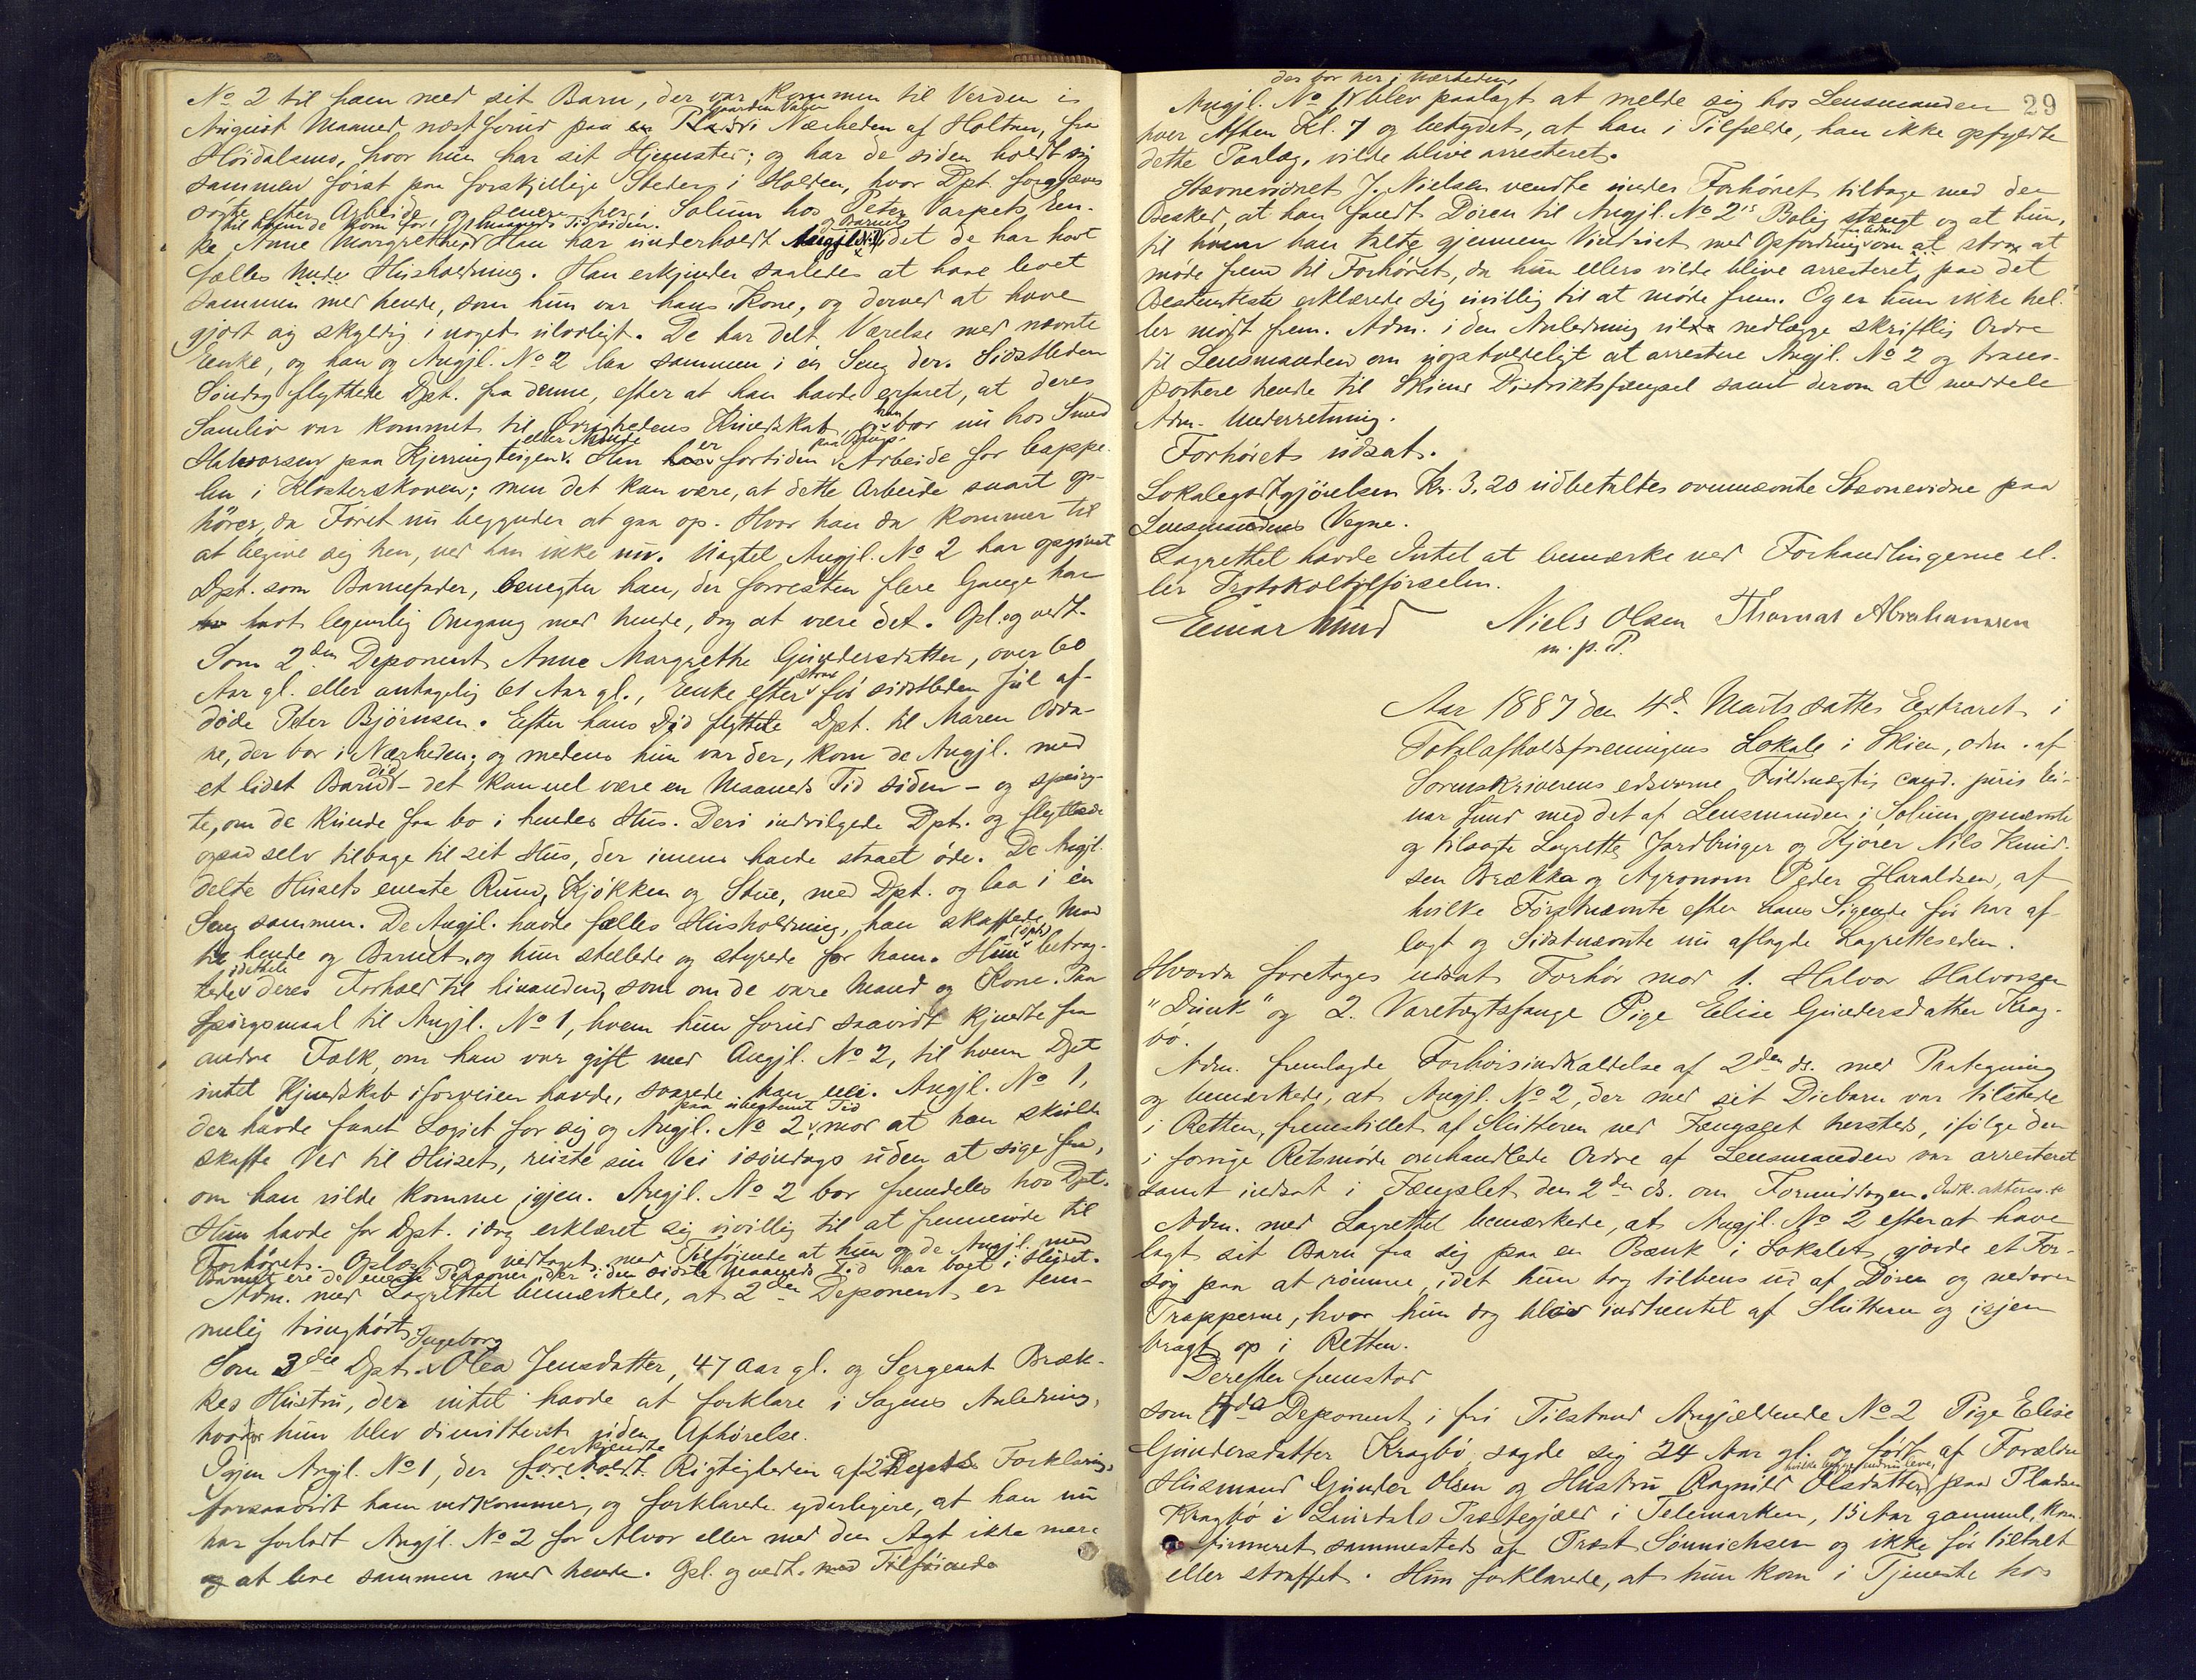 No 2 til ham med sit Barn, der var kommen til Verden i
August Maaned næst forud paa Gaarden i Nærheden af Holtan, fra
Höidalsmo, hvor hun har sit Hjemsted; og har de siden holdt sig
sammen först paa forskjellige Steder i Holden, hvor Dpt. forgjæves
sögte efter Arbeide, og senere her i Solum hos Peter Varpets En-
til hvem de kom for 1 Maaneds Tid siden. og Barnet
ke Anne Margrethe. Han har underholdt Angjl. No 2 idet de har havt
fælles Husholdning. Han erkjender saaledes at have levet
sammen med hende, som hun var hans Kone, og derved at have
gjort sig skyldig i noget ulovligt. De har delt Værelse med nævnte
Enke, og han og Angjl. No 2 laa sammen i én Seng der. Sidstleden
Söndag flyttede Dpt. fra denne, efter at han havde erfaret, at deres
Samliv var kommet til Övrighedens Kundskab, og han bor nu hos Smed
Halvorsen paa Kjerringteigen. Han er fortiden paa Arbeide for Cappe-
len i Klosterskoven; men det kan være, at dette Arbeide snart op-
hörer, da Föret nu begynder at gaa op. Hvor han da kommer til
at begive sig hen, ved han ikke nu. Uagtet Angjl. No 2 har opgivet
Dpt. som Barnefader, benegter han, der forresten flere Gange har
havt legemlig Omgang med hende, dog at være det. Opl. og vedt.
Som 2den Deponent Anne Margrethe Gundersdatter, over 60
Aar gl. eller antagelig 61 Aar gl., Enke efter strax för sidstleden Jul af-
döde Peter Björnsen. Efter hans Död flyttede Dpt. til Maren Odda-
ne, der bor i Nærheden; og medens hun var der, kom de Angjl. med
et lidet Barn did - det kan vel være en Maaneds Tid siden - og spurg-
te, om de kunde faa bo i hendes Hus. Deri indvilgede Dpt. og flyttede
ogsaa selv tilbage til sit Hus, der imens havde staaet öde. De Angjl.
delte Husets eneste Rum, Kjökken og Stue, med Dpt. og laa i én
Seng sammen. De Angjl. havde fælles Husholdning, han skaffede Mad
til hende og Barnet, og hun stellede og styrede for ham. Hun (Dpt.) betrag-
tede idethele deres Forhold til hinanden, som om de vare Mand og Kone. Paa
Spörgsmaal til Angjl. No 1, hvem hun forud saavidt kjendte fra
andre Folk, om han var gift med Angjl. No 2, til hvem Dpt.
intet Kjendskab iforveien havde, svarede han nei. Angjl. No 1,
der havde faaet Logiet for sig og Angjl. No 2 paa ubestemt Tid, mod at han skulde
skaffe Ved til Huset, reiste sin Vei isöndags uden at sige fra,
om han vilde komme igjen. Angjl. No 2 bor fremdeles hos Dpt.
Hun havde for Dpt. idag erklæret sig uvillig til at fremmöde til
Forhöret. Oplæst og vedtaget med Tilföiende at hun og de Angjl. med
Barnet ere de eneste Personer, der i den sidste Maaneds Tid har boet i Huset.
Adm. med Lagrettet bemærkede, at 2den Deponent er tem-
melig tunghört.
Som 3die Dpt. Ingeborg Olea Jensdatter, 47 Aar gl. og Sergeant Bræk-
kes Hustru, der intet havde at forklare i Sagens Anledning,
hvorfor hun blev dimitteret uden Afhörelse.
Igjen Angjl. No 1, der erkjendte Rigtigheden af 2 Depts Forklaring,
forsaavidt ham vedkommer, og forklarede yderligere, at han nu
har forladt Angjl. No 2 for Alvor eller med den Agt ikke mere
at leve sammen med hende. Opl. og vedt. med Tilföiende
29
der bor her i Nærheden
Angjl. No 1 blev paalagt at melde sig hos Lensmanden
hver Aften Kl. 7 og betydet, at han i Tilfælde, han ikke opfyldte
dette Paalæg, vilde blive arresteret.
Stævnevidnet J. Nielsen vendte under Forhöret tilbage med den
Besked, at han fandt Dören til Angjl. No 2's Bolig stængt og at hun,
til hvem han talte gjennem Vinduet med Opfordring fra Adm. om strax at
möde frem til Forhöret, da hun ellers vilde blive arresteret, paa det
Bestemteste erklærede sig uvillig til at möde frem. Og er hun ikke hel-
ler mödt frem. Adm. i den Anledning vilde nedlægge skriftlig Ordre
til Lensmanden om uopholdeligt at arrestere Angjl. No 2 og trans-
portere hende til Skiens Distriktsfængsel samt derom at meddele
Adm. Underretning.
Forhöret udsat.
Lokalegodtgjörelsen Kr. 3,20 udbetaltes ovennævnte Stævnevidne paa
Lensmandens Vegne.
Lagrettet havde Intet at bemærke ved Forhandlingerne el-
ler Protokoltilförselen.
Einar Sund Niels Olsen Thomas Abrahamsen
m. p. P.
Aar 1887 den 4de Marts sattes Extraret i
Totalafholdsforeningens Lokale i Skien, adm. af
Sorenskriverens edsvorne Fuldmægtig cand. juris Ei-
nar Sund med det af Lensmanden i Solum opnævnte
og tilsagte Lagrette, Jardbruger og Kjörer Nils Knud-
sen Brække og Agronom Peder Haraldsen, af
hvilke Förstnævnte efter hans Sigende för har af-
lagt og Sidstnævnte nu aflagde Lagretteseden.
Hvorda foretages udsat Forhör mod 1. Halvor Halvorsen
"Dunk" og 2. Varetægtsfange Pige Elise Gundersdatter Krag-
bö.
Adm. fremlagde Forhörsindkaldelse af 2den ds. med Paategning
og bemærkede, at Angjl. No 2, der med sit Diebarn var tilstede
i Retten, fremstillet af Slutteren ved Fængslet hersteds, ifölge den
i forrige Retsmöde omhandlede Ordre af Lensmanden var arresteret
samt indsat i Fængslet den 2den ds. om Formiddagen. Indk. akteres.
Adm. med Lagrettet bemærkede, at Angjl. No 2 efter at have
lagt sit Barn fra sig paa en Bænk i Lokalet, gjorde et For-
sög paa at römme, idet hun tog tilbens ud af Dören og nedover
Trapperne, hvor hun dog blev indhentet af Slutteren og igjen
bragt op i Retten.
Derefter fremstod
som 4de Deponent i fri Tilstand Angjældende No 2 Pige Elise
Gundersdatter Kragbö, sagde sig 24 Aar gl. og födt af Forældre
hvilke begge endnu leve,
Husmand Gunder Olsen og Hustru Ragnild Olsdatter paa Pladsen
Kragbö i Laurdals Præstegjæld i Telemarken, 15 Aar gammel, kon-
firmeret sammesteds af Præst Sönnichsen og ikke för tiltalt
eller straffet. Hun forklarede, at hun kom i Tjeneste hos